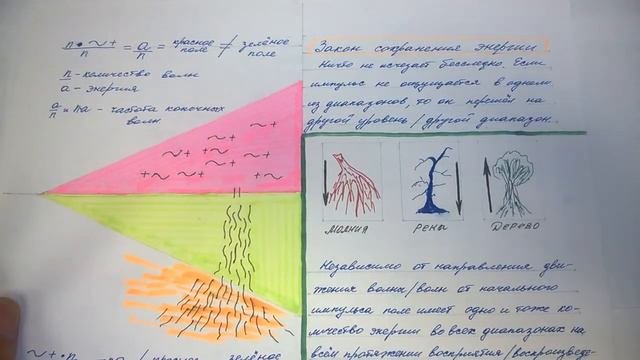 n • ~ + / n = a/n = красное поле ≠ зелёное поле
n - количество волн
a - энергия
a/n и na - частота конечных
волн
Закон сохранения энергии
Ничто не исчезает бесследно. Если
импульс не ощущается в одном
из диапазонов, то он перешёл на
другой уровень / другой диапазон.
МОЛНИЯ
РЕКЫ
ДЕРЕВО
Независимо от направления дви-
жения волны/волн от начального
импульса поле имеет одно и тоже ко-
личество энергии во всех диапазонах на
всём протяжении восприятия/воспроизведе-
зелёное